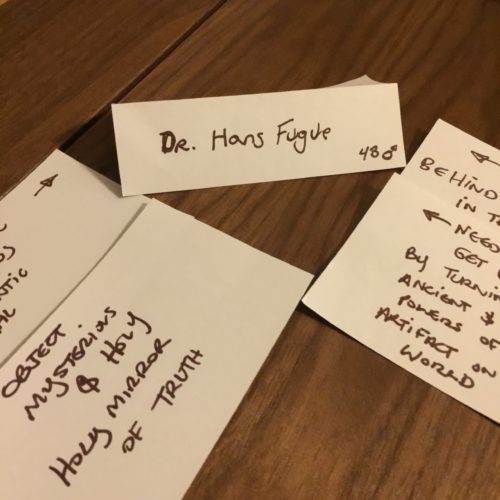 Dr. Hans Fugue
48♂
OBJECT
MYSTERIOUS
& HOLY
HOLY MIRROR
OF TRUTH
←
BEHIND
IN
← NEED
GET
BY
ANCIENT &
POWERS OF
ARTIFACT ON
WORLD